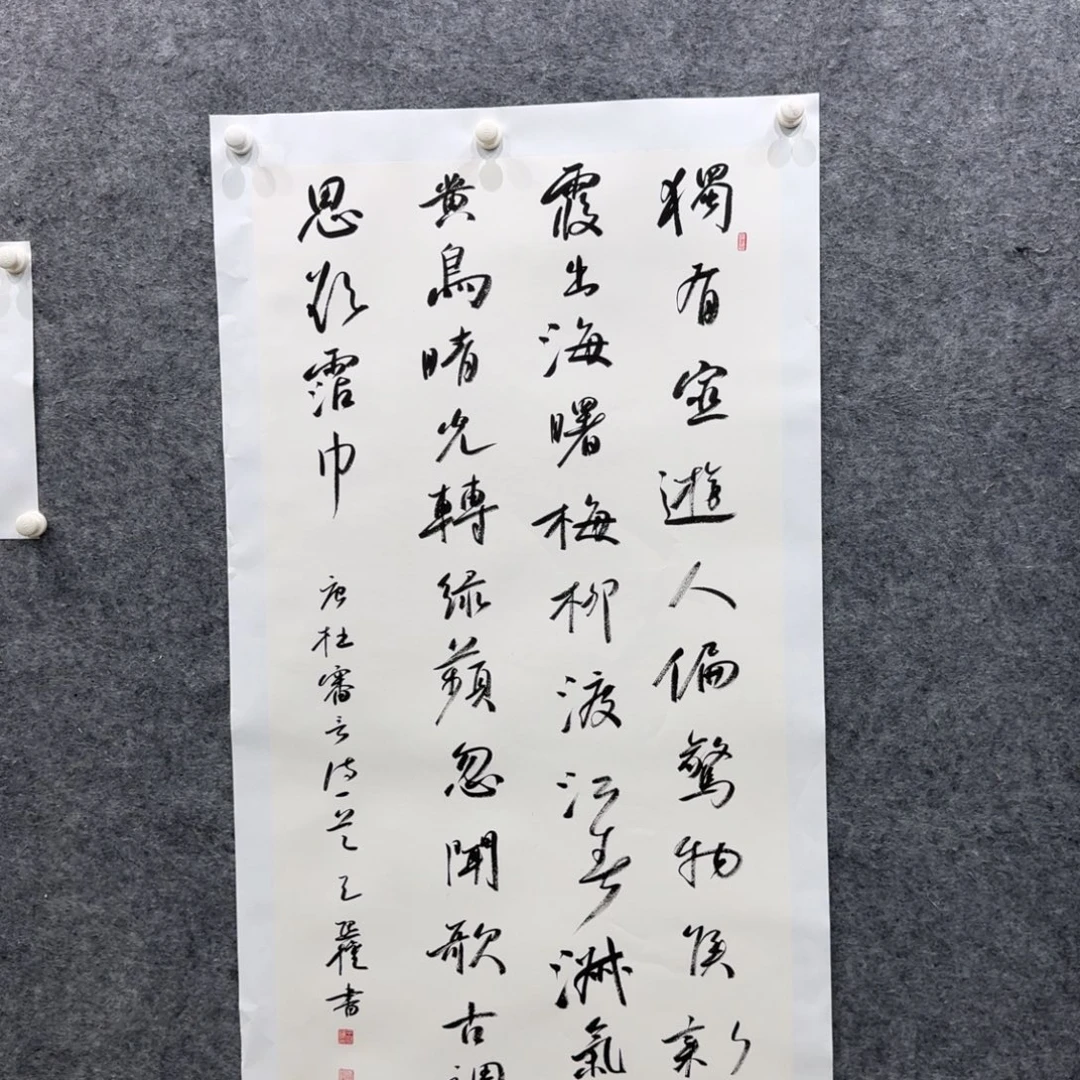 獨有宦遊人偏驚物候新
霞出海曙梅柳渡江春淑氣
黄鳥晴光轉緑蘋忽聞歌古調
思欲霑巾
唐杜審言詩一首 書